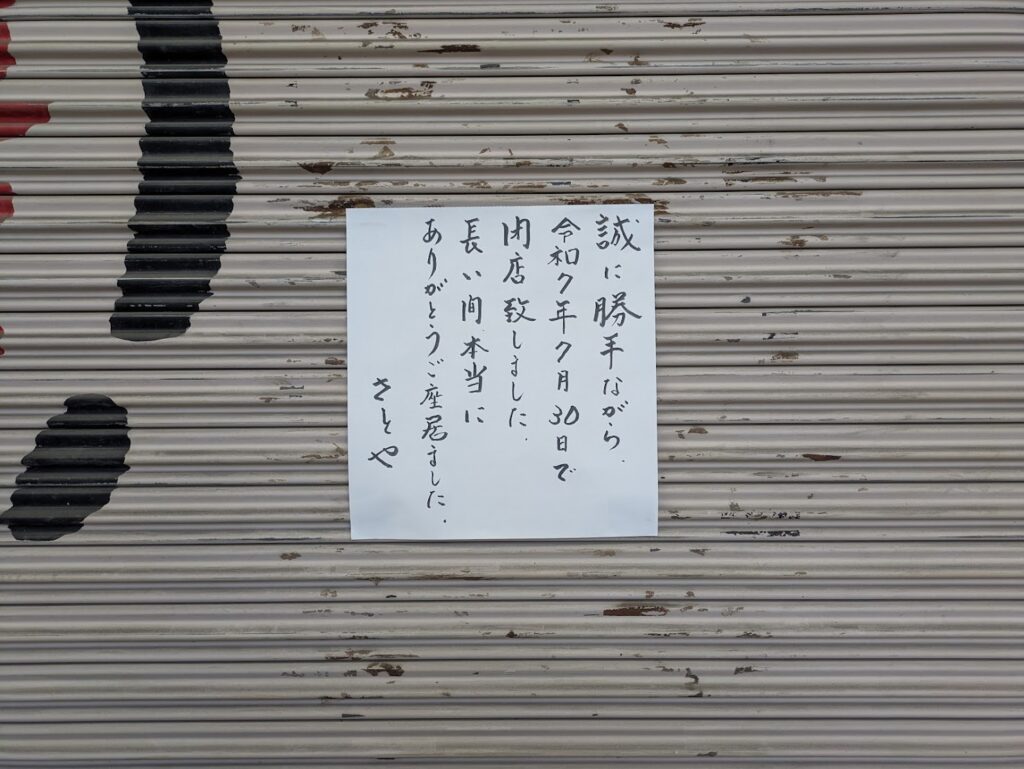 誠に勝手ながら.
令和7年7月30日で
閉店致しました.
長い間本当に
ありがとうご座居ました.
さとや